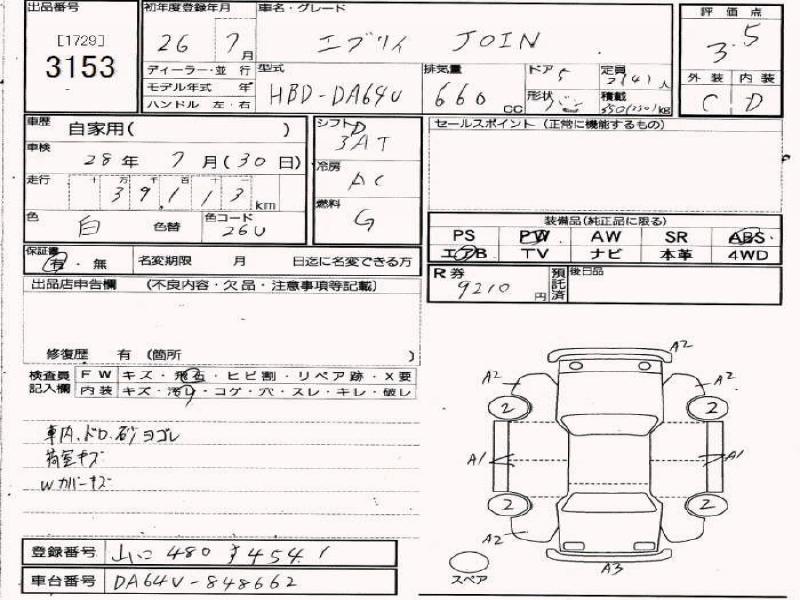 出品番号
[1729]
3153
初年度登録年月
26 7月
車名・グレード
エブリイ JOIN
評価点
3.5
外装 内装
C D
ディーラー・並行
モデル年式 年
ハンドル 左・右
型式
HBD-DA64V
排気量
660 CC
ドア 5
形状 バン
定員 2(4)人
積載 350(250)kg
車歴
自家用( )
車検
28年 7月(30日)
走行
十 万 千 百 十 一
39,113 km
色 白
色替
色コード
26U
シフト
3AT
冷房
AC
燃料
G
セールスポイント (正常に機能するもの)
装備品(純正品に限る)
PS PW AW SR ABS
エアB TV ナビ 本革 4WD
保証書
有・無
名変期限 月 日迄に名変できる方
R券
9210 円
預託済
後日品
出品店申告欄 (不良内容・欠品・注意事項等記載)
修復歴 有 (箇所 )
検査員記入欄
FW キズ・飛石・ヒビ割・リペア跡・X要
内装 キズ・汚れ・コゲ・穴・スレ・キレ・破レ
車内.ドロ.砂ヨゴレ
荷室キズ
Wカバーキズ
A2
A2 A2
2 2
A1 A1
2 2
A2
A3
スペア
登録番号 山口 480
車台番号 DA64V-848662